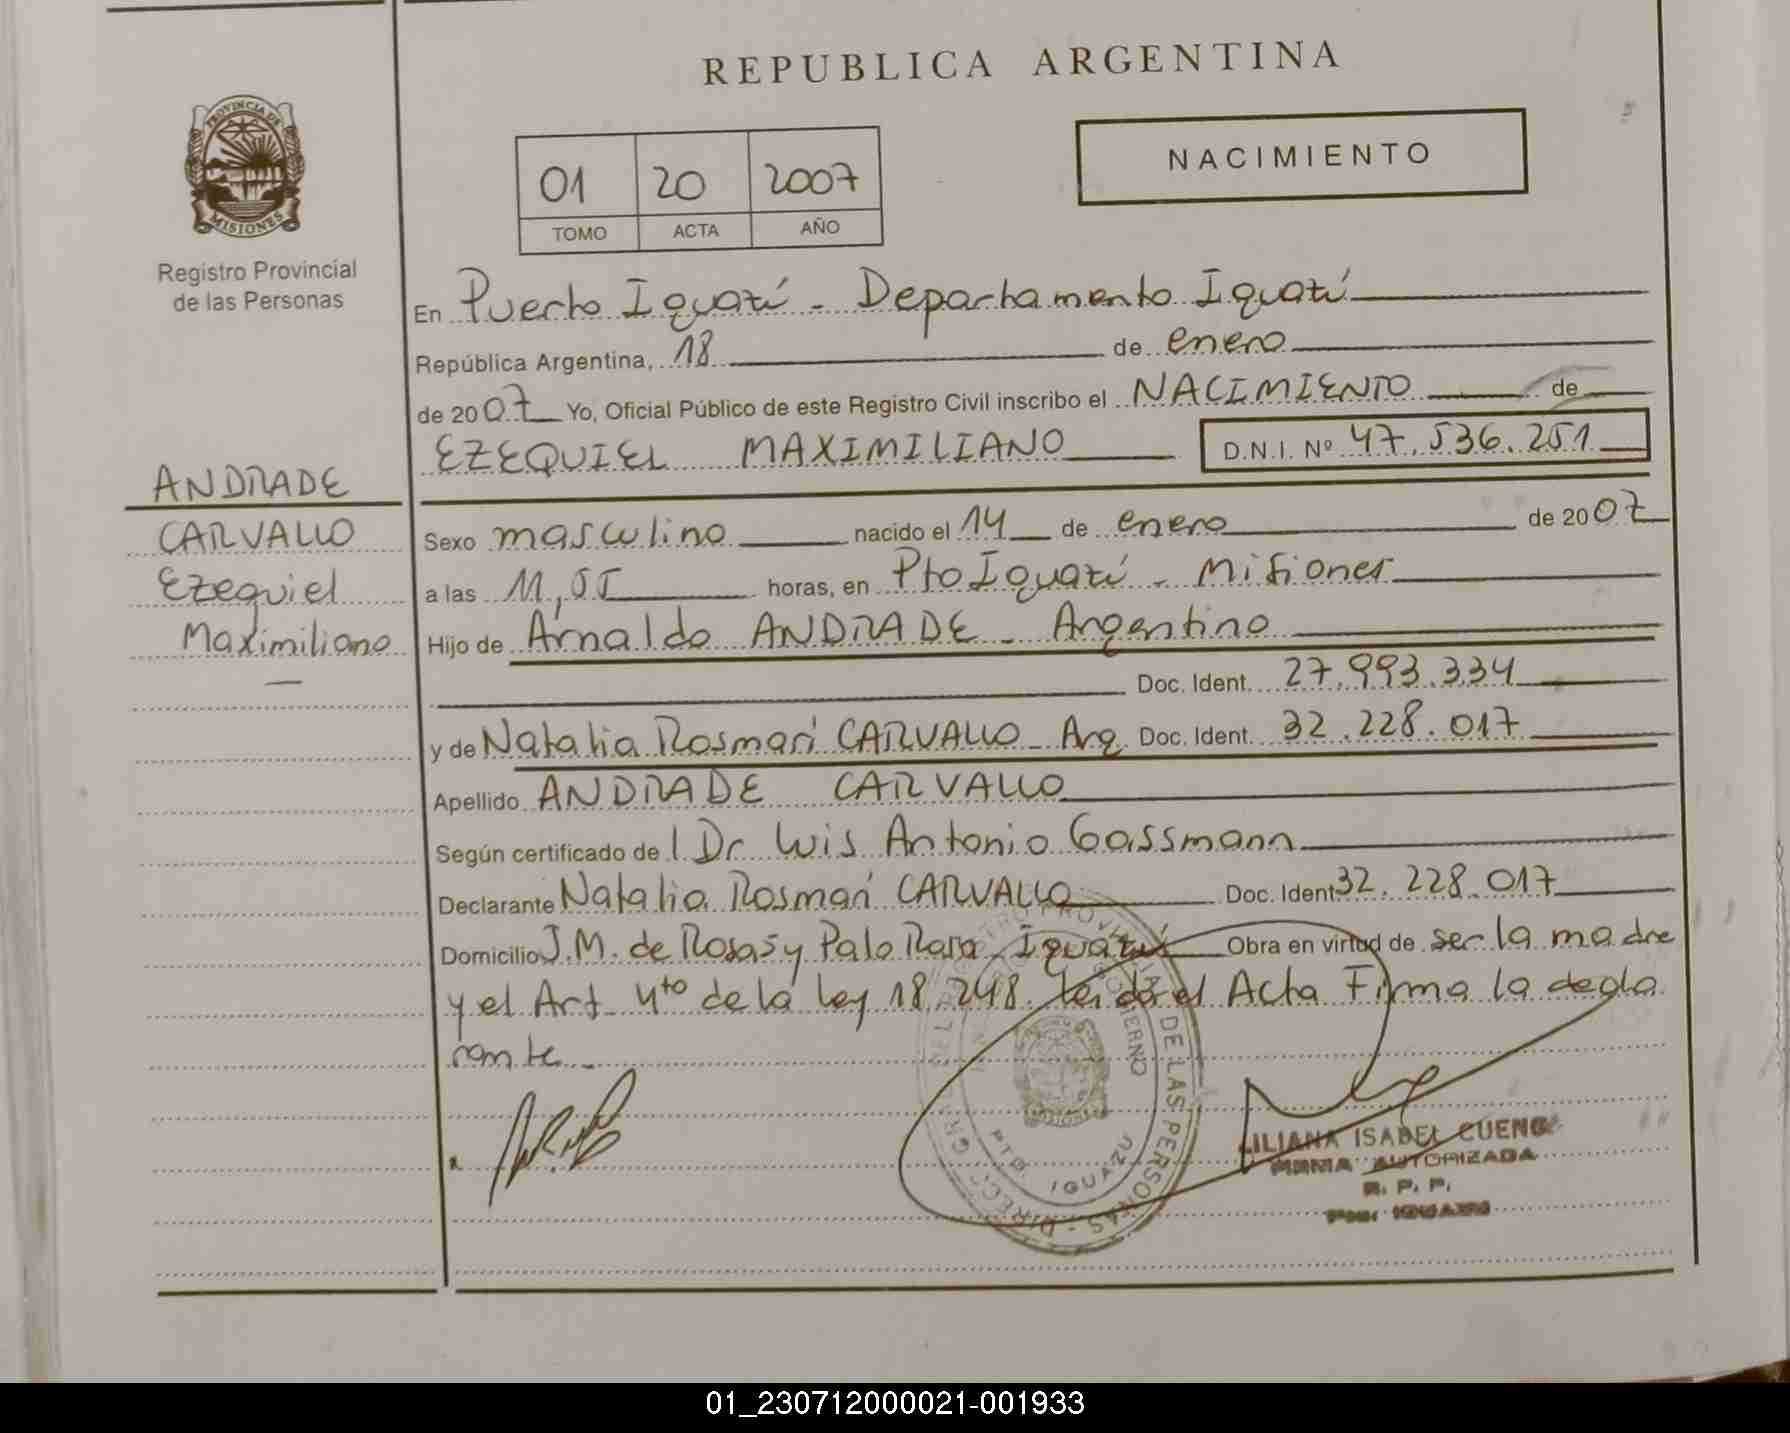 REPUBLICA ARGENTINA
PROVINCIA DE
MISIONES
Registro Provincial
de las Personas
NACIMIENTO
01 20 2007
TOMO ACTA AÑO
En Puerto Iguazú - Departamento Iguazú
República Argentina, 18 de enero
de 2007 Yo, Oficial Público de este Registro Civil inscribo el NACIMIENTO de
EZEQUIEL MAXIMILIANO D.N.I. Nº 47.536.251
ANDRADE
CARVALLO
Ezequiel
Maximiliano
Sexo masculino nacido el 14 de enero de 2007
a las 11,55 horas, en Pto Iguazú - Misiones
Hijo de Arnaldo ANDRADE - Argentino
Doc. Ident. 27.993.334
y de Natalia Rosmarí CARVALLO - Arg. Doc. Ident. 32.228.017
Apellido ANDRADE CARVALLO
Según certificado de l Dr Luis Antonio Gassmann
Declarante Natalia Rosmarí CARVALLO Doc. Ident 32.228.017
Domicilio J.M. de Rosas y Palo Rosa - Iguazú Obra en virtud de ser la madre
y el Art 4to de la ley 18.248. Leida el Acta Firma la decla
rante -
DE LAS PERSONAS
GOBIERNO
PTO. IGUAZU
LILIANA ISABEL CUENCA
FIRMA AUTORIZADA
R. P. P.
IGUAZU
01_230712000021-001933